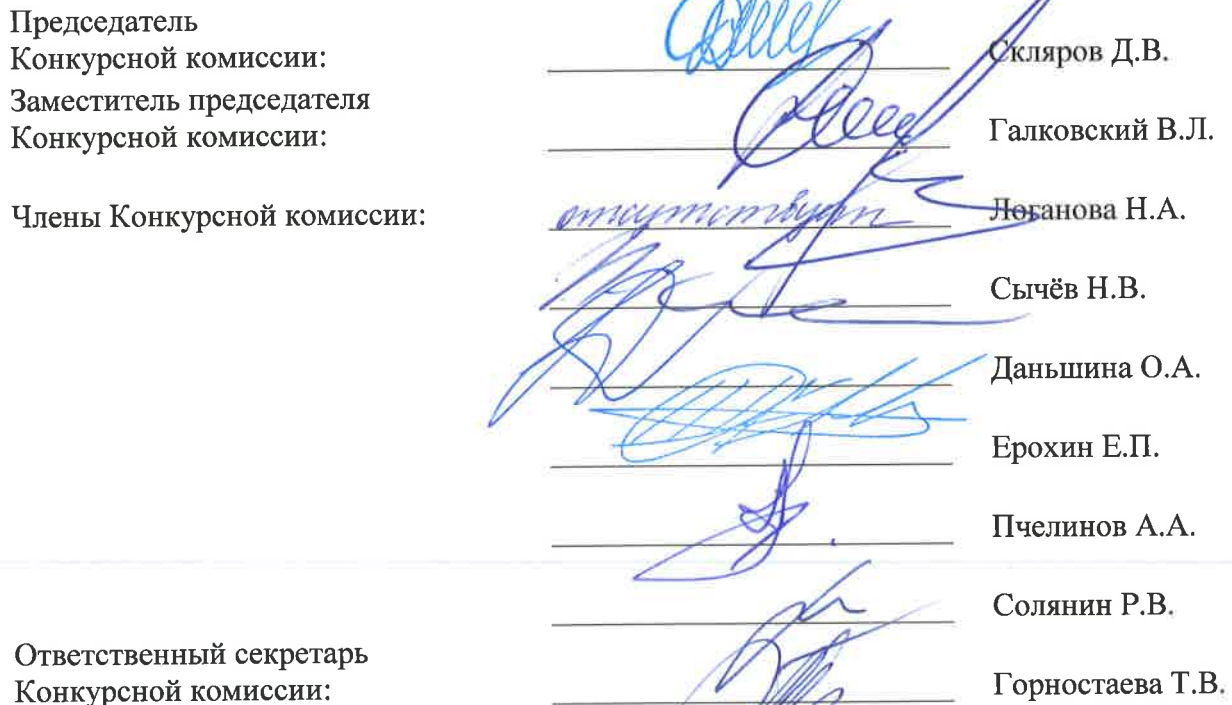 Председатель
Конкурсной комиссии: Скляров Д.В.
Заместитель председателя
Конкурсной комиссии: Галковский В.Л.
Члены Конкурсной комиссии: отсутствует Логанова Н.А.
Сычёв Н.В.
Даньшина О.А.
Ерохин Е.П.
Пчелинов А.А.
Солянин Р.В.
Ответственный секретарь
Конкурсной комиссии: Горностаева Т.В.